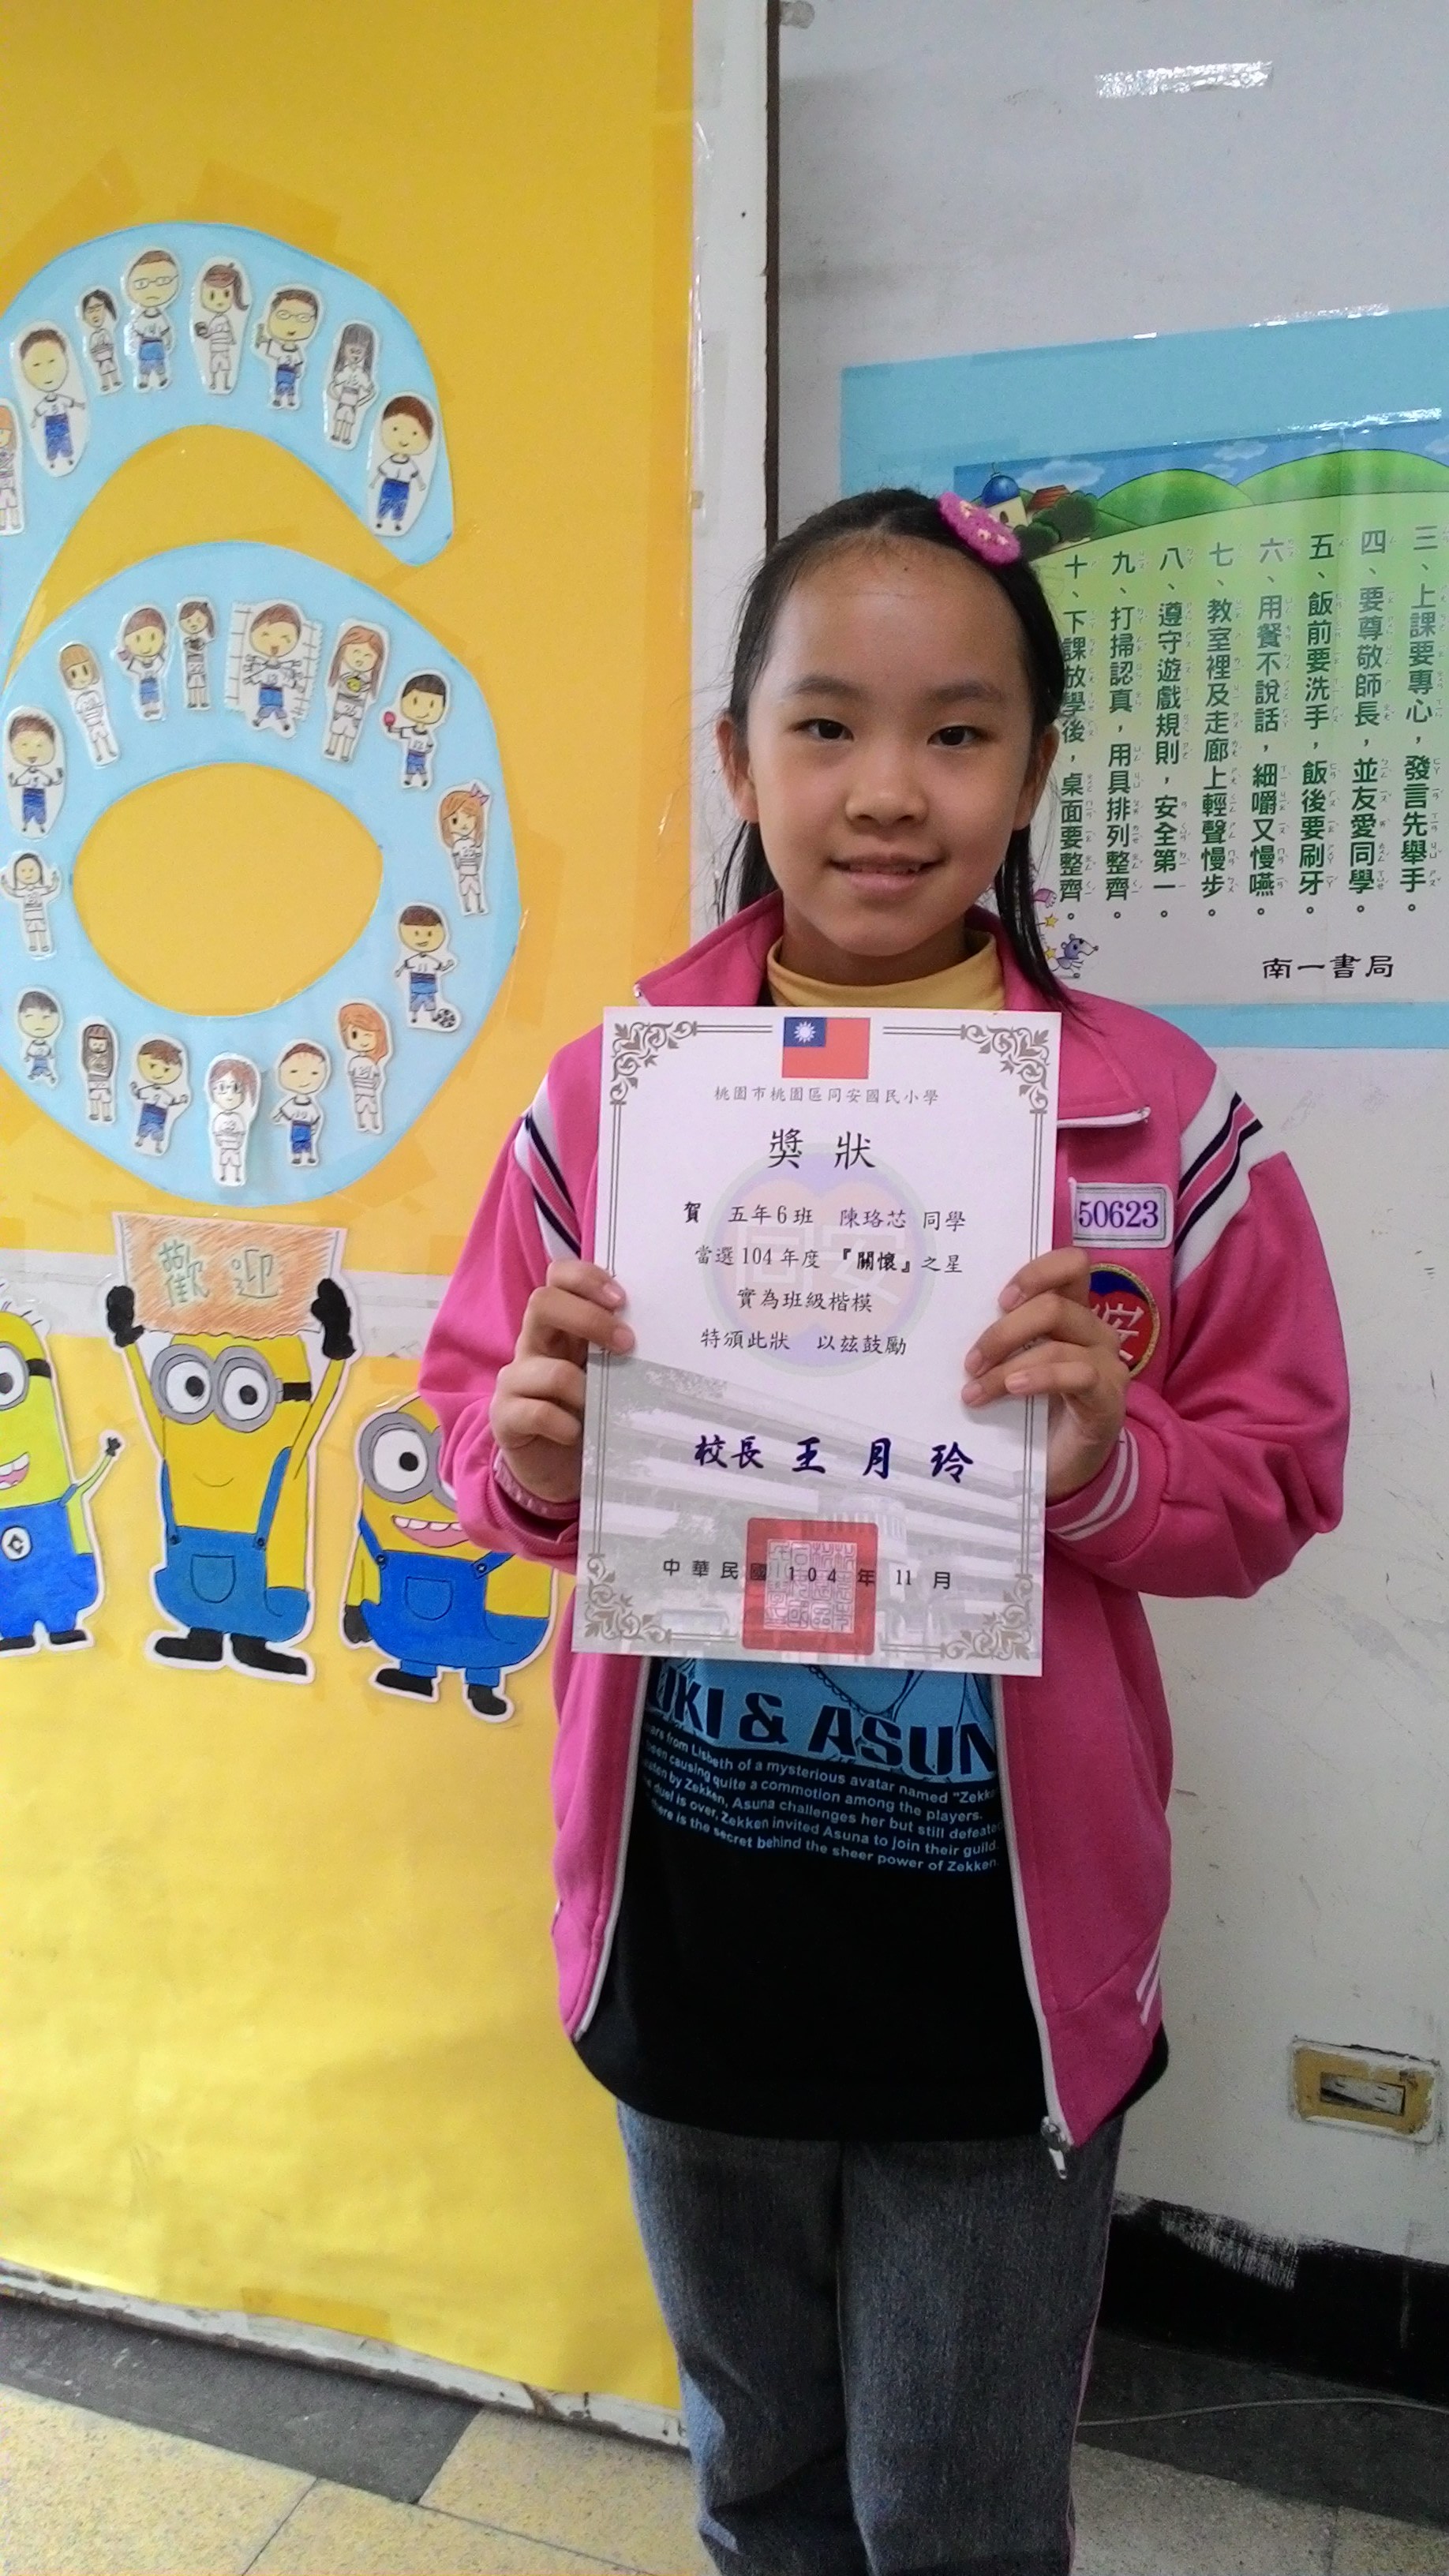 歡迎
三、上課要專心，發言先舉手。
四、要尊敬師長，並友愛同學。
五、飯前要洗手，飯後要刷牙。
六、用餐不說話，細嚼又慢嚥。
七、教室裡及走廊上輕聲慢步。
八、遵守遊戲規則，安全第一。
九、打掃認真，用具排列整齊。
十、下課放學後，桌面要整齊。
南一書局
桃園市桃園區同安國民小學
獎狀
賀 五年6班 陳珞芯 同學
當選104年度『關懷』之星
實為班級楷模
特頒此狀 以茲鼓勵
校長 王月玲
中華民國104年11月
50623
安
UKI & ASUN
ars from Lisbeth of a mysterious avatar named "Zekk
een causing quite a commotion among the players.
by Zekken, Asuna challenges her but still defeate
duel is over, Zekken invited Asuna to join their guild.
here is the secret behind the sheer power of Zekken.